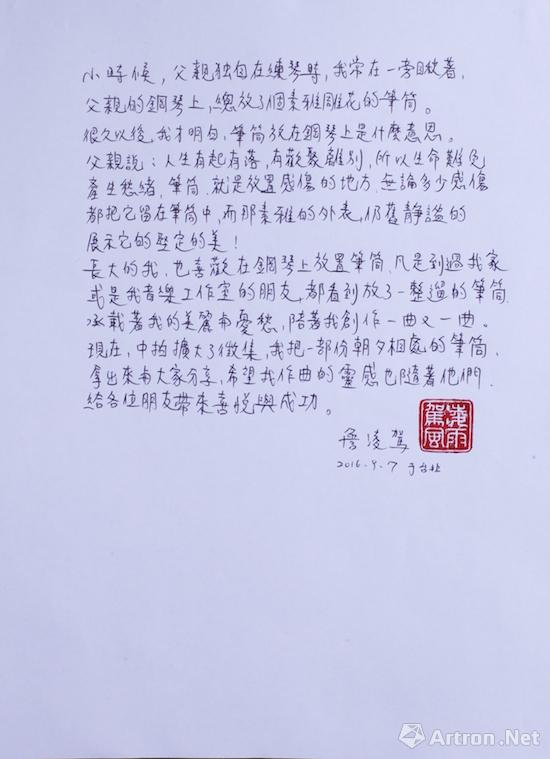 小時候，父親独自在練琴時，我常在一旁瞅著，
父親的鋼琴上，總放了個素雅雕花的筆筒。
很久以後，我才明白，筆筒放在鋼琴上是什麼意思。
父親說：人生有起有落，有歡聚離別，所以生命難免
產生愁緒，筆筒，就是放置感傷的地方，無論多少感傷
都把它留在筆筒中，而那素雅的外表，仍舊靜謐的
展示它的堅定的美！
長大的我，也喜歡在鋼琴上放置筆筒，凡是到過我家
或是我音樂工作室的朋友，都看到放了一整遍的筆筒，
承載著我的美麗和憂愁，陪著我創作一曲又一曲。
現在，中拍擴大了徵集，我把一部份朝夕相處的筆筒，
拿出來和大家分享，希望我作曲的靈感也隨著他們，
給各位朋友帶來喜悅與成功。
詹凌駕
2016.9.7 于台北
凌雨
駕風
Artron.Net